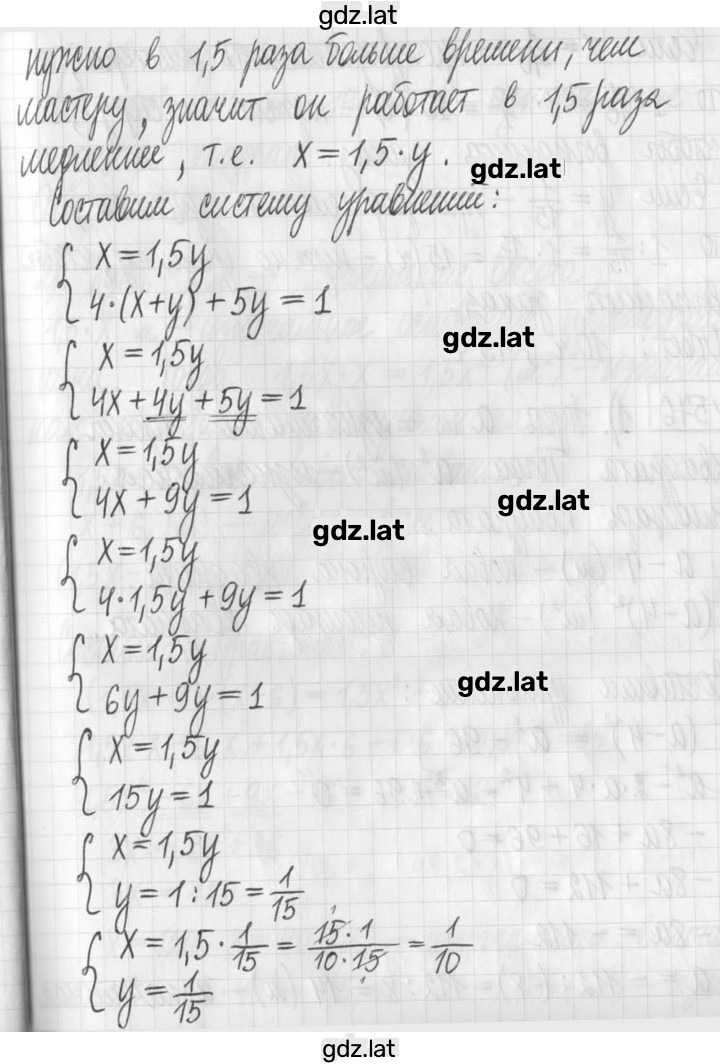 gdz.lat
нужно в 1,5 раза больше времени, чем
мастеру, значит он работает в 1,5 раза
медленнее, т.е. x = 1,5 · y.
gdz.lat
Составим систему уравнений:
{ x = 1,5y
4·(x+y) + 5y = 1
gdz.lat
{ x = 1,5y
4x + 4y + 5y = 1
{ x = 1,5y
4x + 9y = 1
gdz.lat
gdz.lat
{ x = 1,5y
4·1,5y + 9y = 1
{ x = 1,5y
6y + 9y = 1
gdz.lat
{ x = 1,5y
15y = 1
{ x = 1,5y
y = 1 : 15 = 1/15
{ x = 1,5 · 1/15 = 15·1/10·15 = 1/10
y = 1/15
gdz.lat